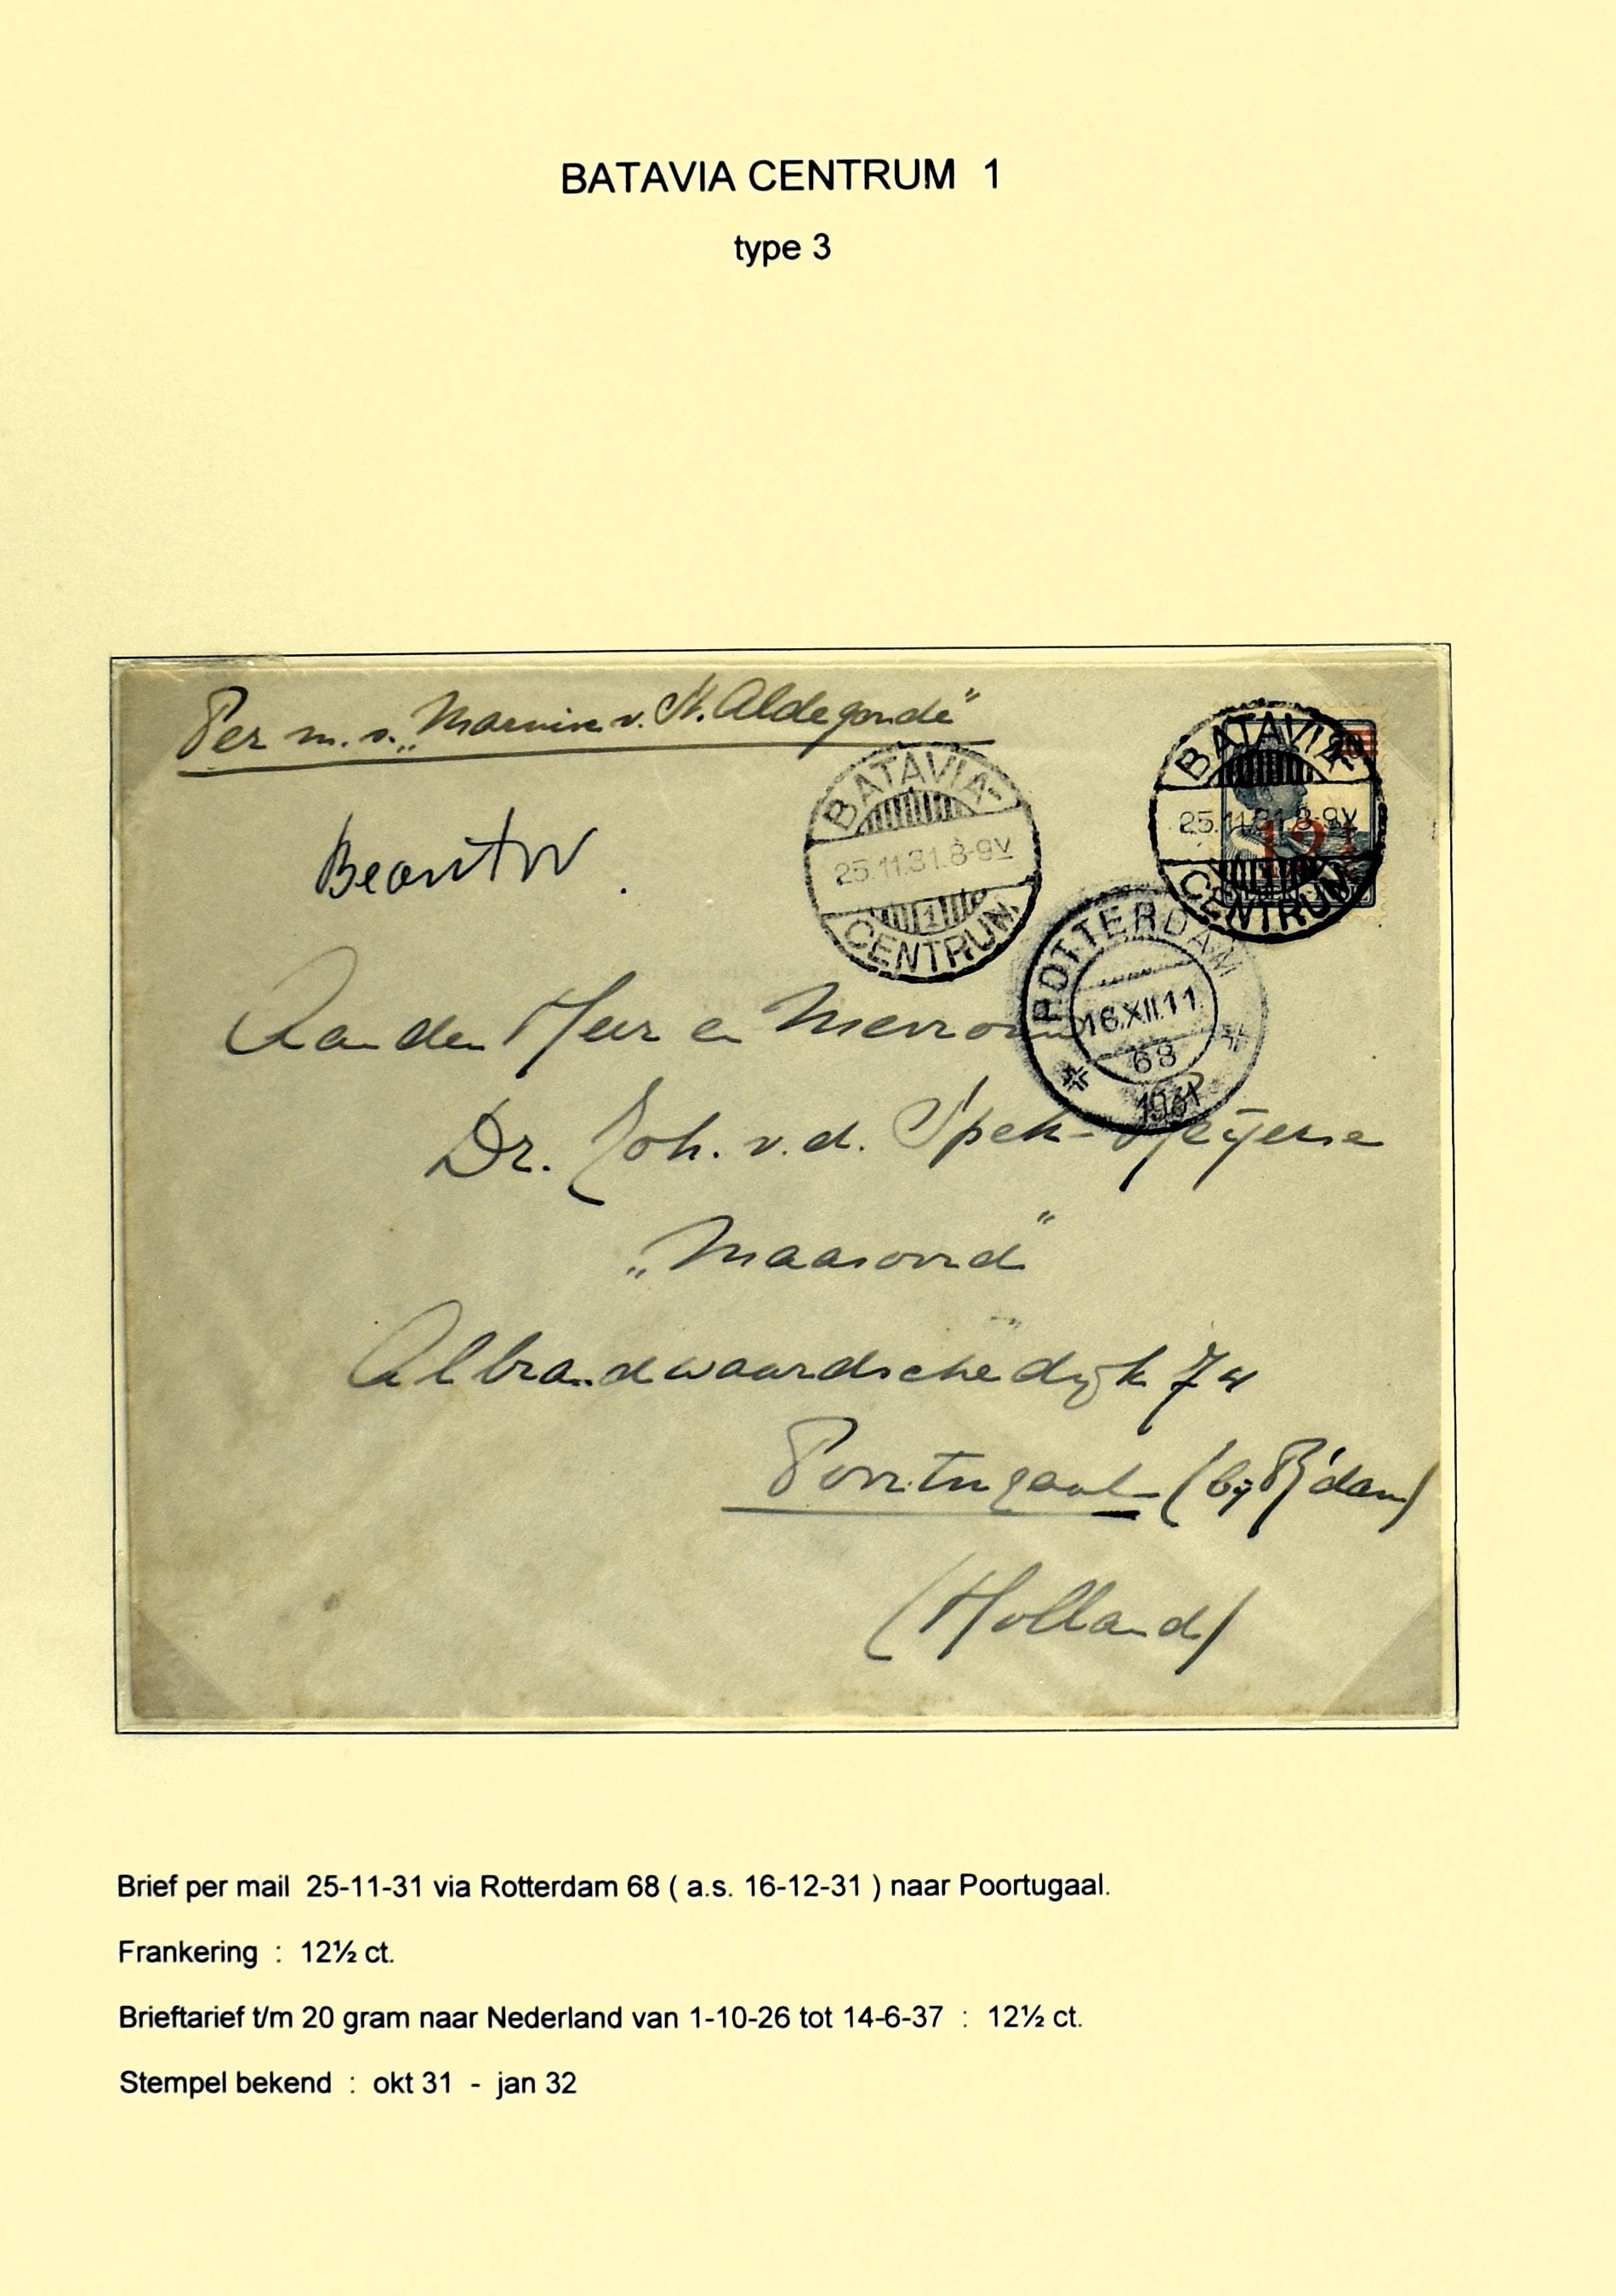 BATAVIA CENTRUM 1
type 3
Per m.s. „Marnix v. St. Aldegonde"
BATAVIA-
25.11.31.8-9V
1
CENTRUM
BATAVIA-
20
25.11.31.8-9V
12½
CENTRUM
Beantw.
ROTTERDAM
16.XII.11
68
1931
Aan den Heer en Mevrouw
Dr. Joh. v.d. Spek-
„Maasoord"
Albrandwaardschedijk 74
Poortugaal (bij R'dam)
(Holland)
Brief per mail 25-11-31 via Rotterdam 68 ( a.s. 16-12-31 ) naar Poortugaal.
Frankering : 12½ ct.
Brieftarief t/m 20 gram naar Nederland van 1-10-26 tot 14-6-37 : 12½ ct.
Stempel bekend : okt 31 - jan 32